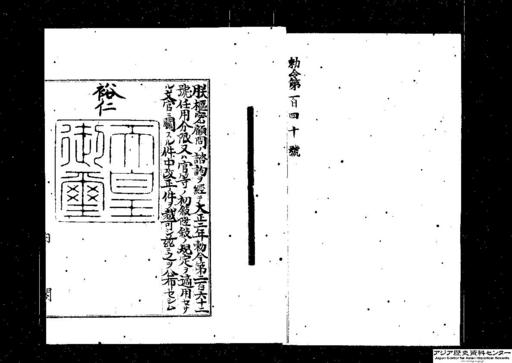 勅令第百四十號
朕樞密顧問ノ諮詢ヲ經テ大正二年勅令第二百六十二
號任用分限又ハ官等ノ初敍陞敍ノ規定ヲ適用セサ
ル文官ニ關スル件中改正ノ件ヲ裁可シ茲ニ之ヲ公布セシム
裕仁
天皇
御璽
内閣
アジア歴史資料センター
Japan Center for Asian Historical Records